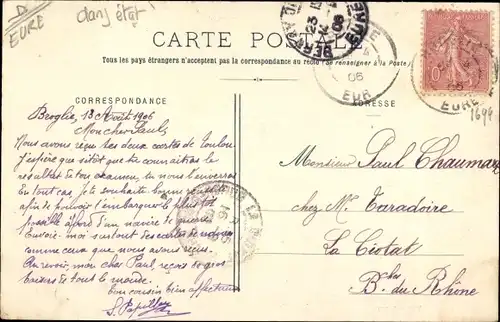 D.
EURE
dans état
CARTE POSTALE
Tous les pays étrangers n'acceptent pas la correspondance au recto (Se renseigner à la Poste)
CORRESPONDANCE
ADRESSE
1694
Broglie, 13 Août 1906
Mon cher Paul,
Nous avons reçu les deux cartes de Toulon.
J'espère que sitôt que tu connaîtras le
résultat de ton examen, tu nous l'enverras
En tout cas, je te souhaite bonne réussite
afin de pouvoir t'embarquer le plus tôt
possible à bord d'un navire de guerre.
Envoie-moi surtout des cartes de
comme ceux que nous avons reçus.
Au revoir, mon cher Paul, reçois de gros
baisers de tout le monde.
Ton cousin bien affectueux
Monsieur Paul Chaumar
chez Mr Taradoire
La Ciotat
Bches du Rhône